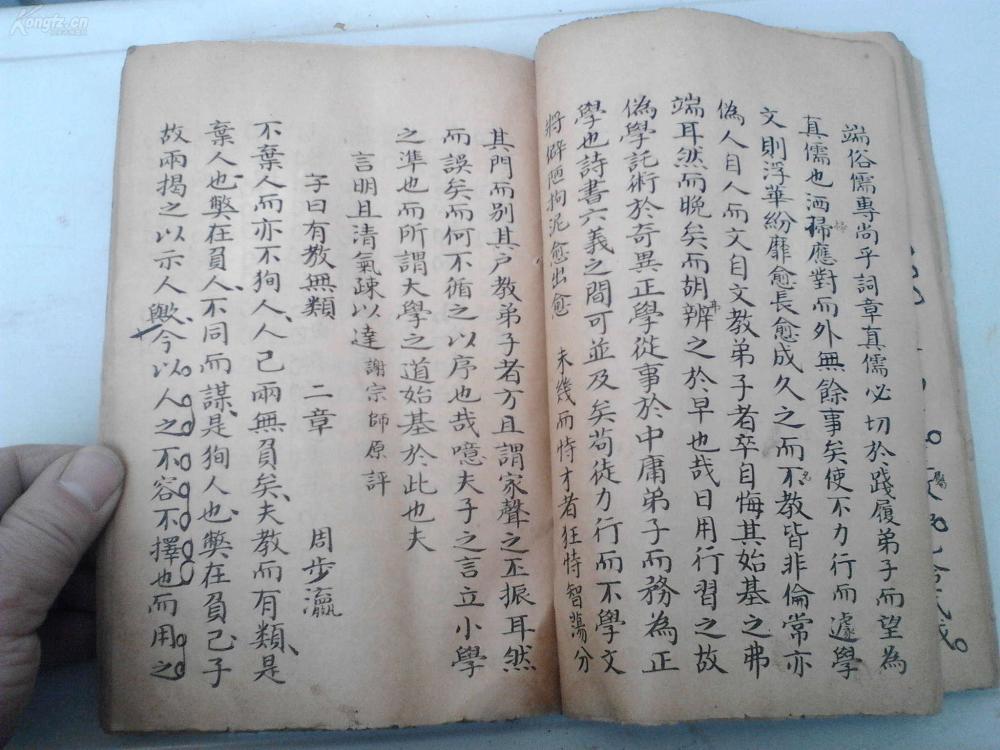 端俗儒專尚乎詞章真儒必切於踐履弟子而望為
真儒也洒掃應對而外無餘事矣使不力行而遽學
文則浮華紛靡愈長愈成久之而不教皆非倫常亦
偽人自人而文自文教弟子者卒自悔其始基之弗
端耳然而晚矣而胡辨之於早也哉日用行習之故
偽學託術於奇異正學從事於中庸弟子而務為正
學也詩書六義之間可並及矣苟徒力行而不學文
將僻陋拘泥愈出愈 未幾而恃才者狂恃智蕩分
其門而別其户教弟子者方且謂家聲之丕振耳然
而誤矣而何不循之以序也哉噫夫子之言立小學
之準也而所謂大學之道始基於此也夫
言明且清氣疎以達 謝宗師原評
子曰有教無類 二章 周步瀛
不棄人而亦不狥人人己兩無負矣夫教而有類是
棄人也獘在負人不同而謀是狥人也獘在負己子
故兩揭之以示人歟今以人之不容不擇也而用之
Kongfz.cn